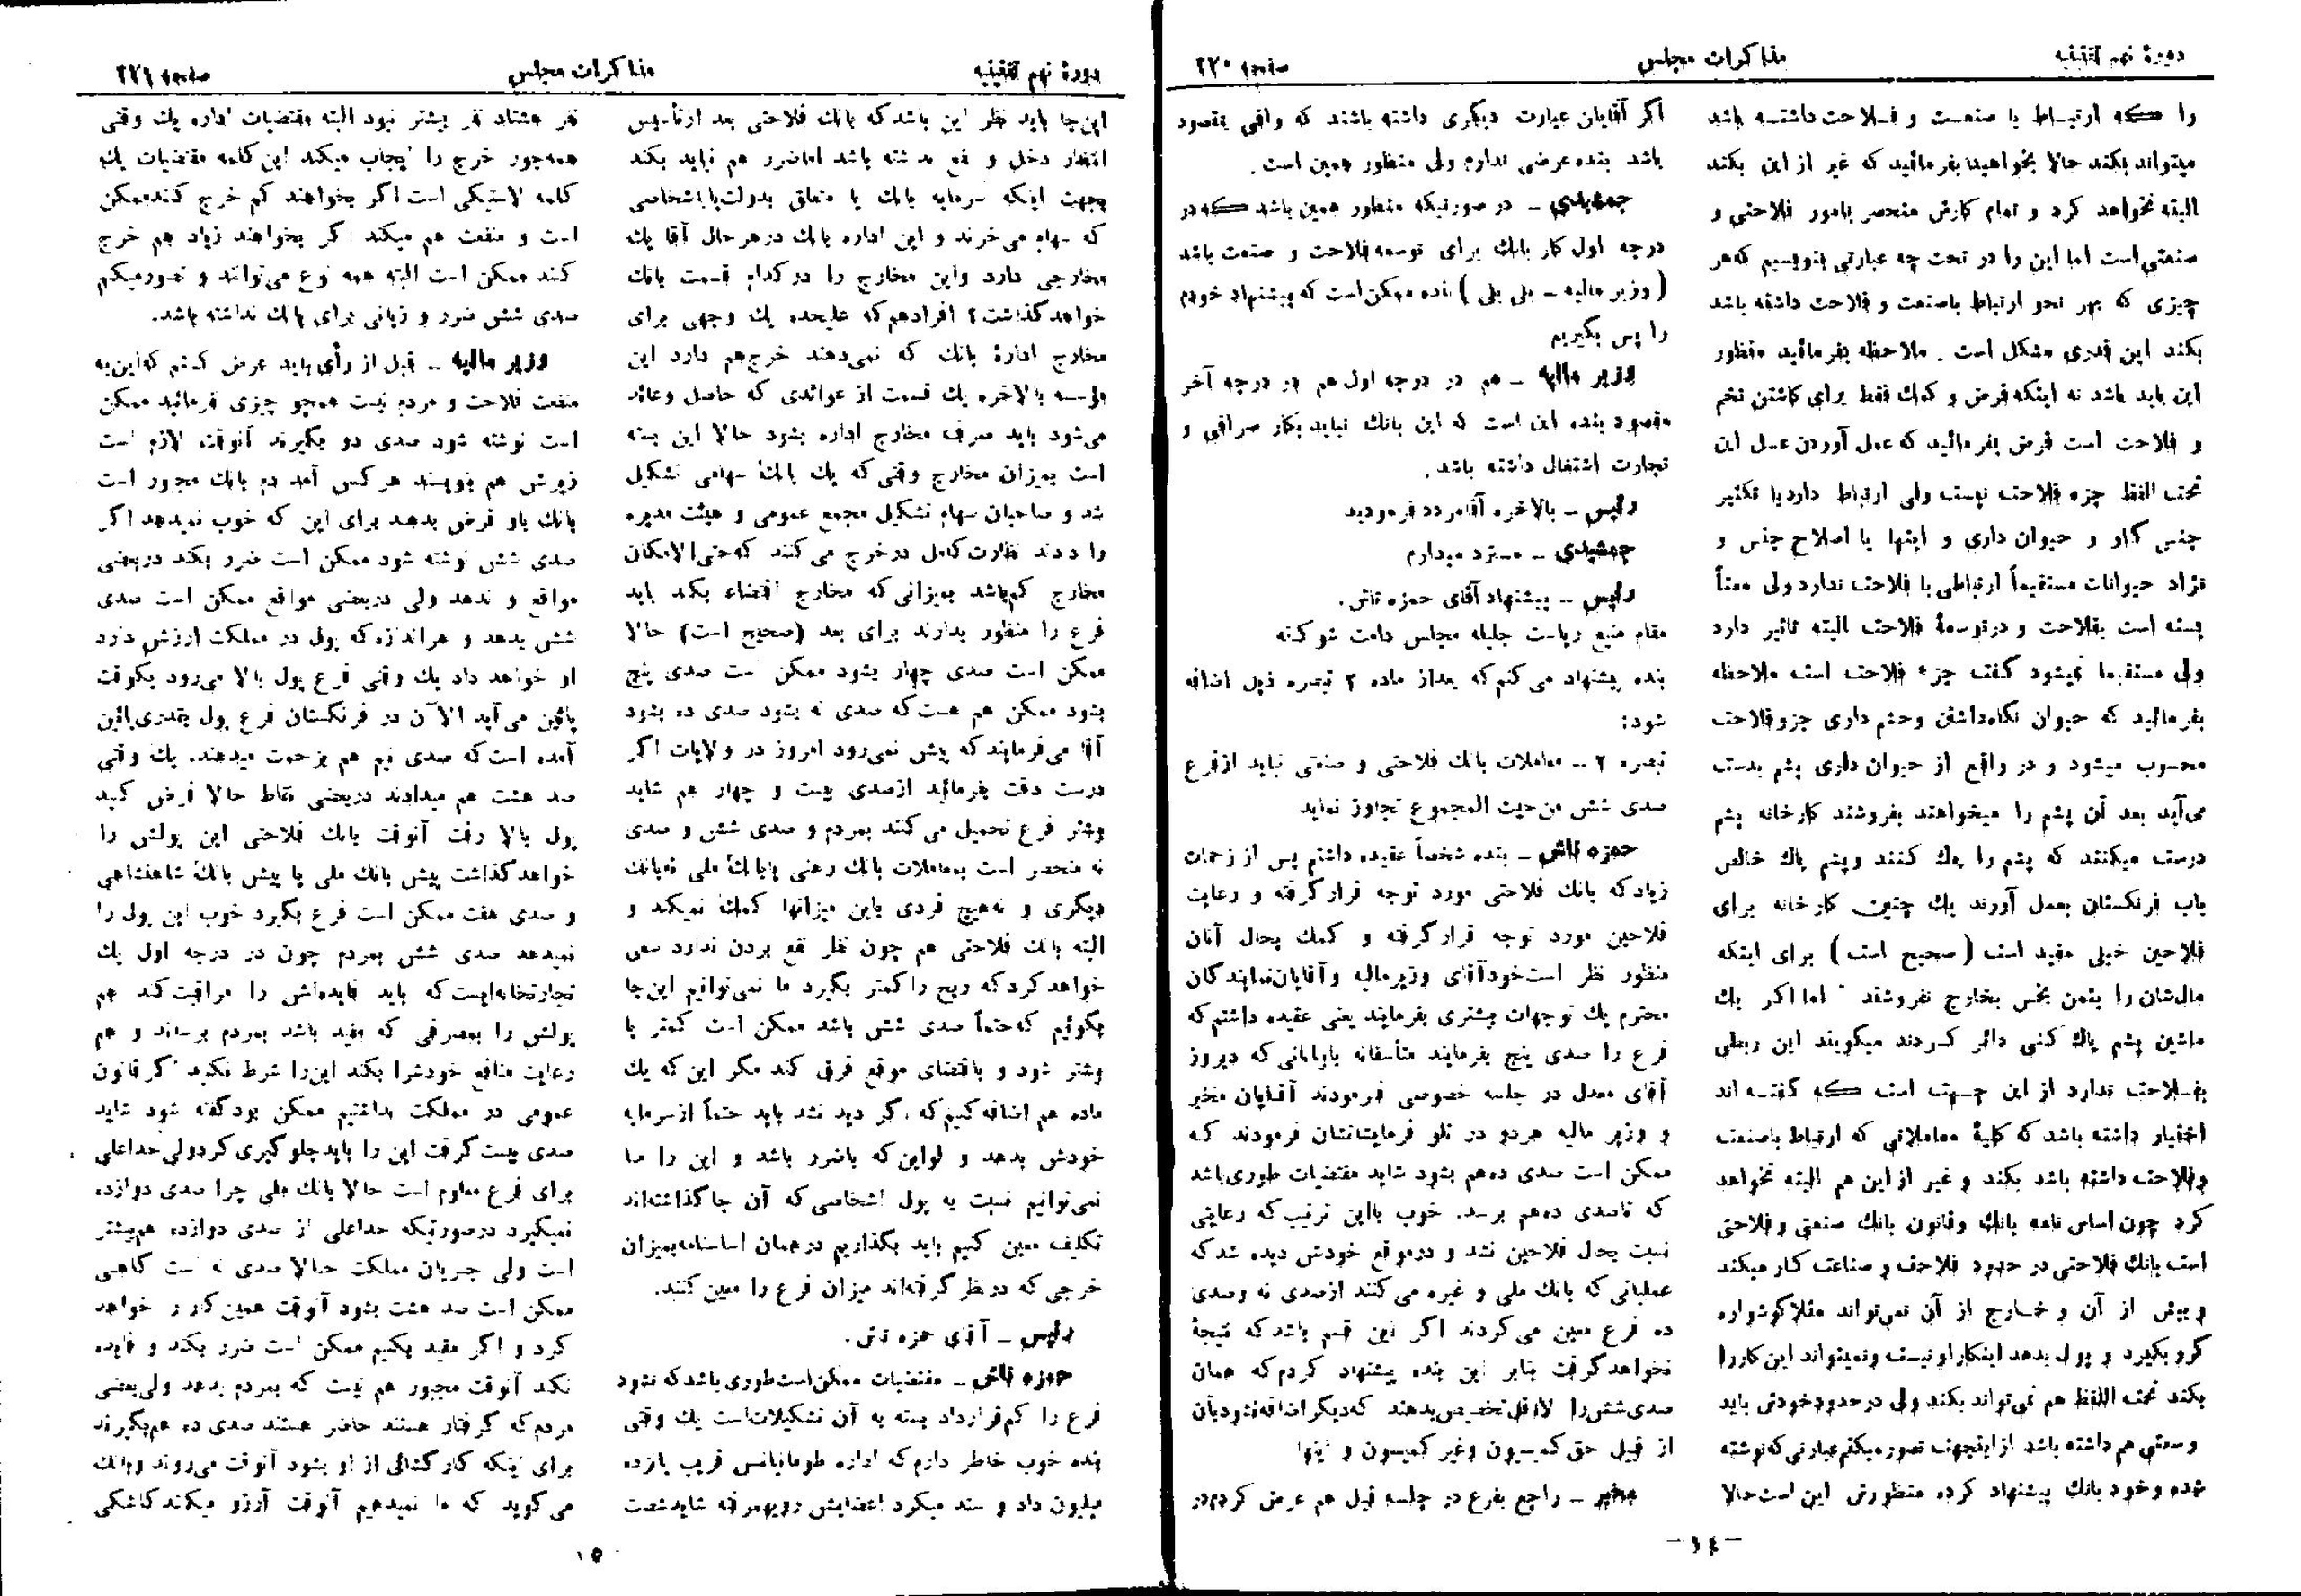 دورهٔ نهم تقنینیه
مذاکرات مجلس
صفحه ۲۲۰
را که ارتباط با صنعت و فلاحت داشته باشد
میتواند بکند حالا بخواهید بفرمائید که غیر از این بکند
البته نخواهد کرد و تمام کارش منحصر بامور فلاحتی و
صنعتی است اما این را در تحت چه عبارتی بنویسیم که هر
چیزی که بهر نحو ارتباط باصنعت و فلاحت داشته باشد
بکند این قدری مشکل است . ملاحظه بفرمائید منظور
این باید باشد نه اینکه قرض و کمك فقط برای کاشتن تخم
و فلاحت است فرض بفرمائید که عمل آوردن عسل این
تحت اللفظ جزء فلاحت نیست ولی ارتباط دارد یا تکثیر
جنس گاو و حیوان داری و اینها یا اصلاح جنس و
نژاد حیوانات مستقیماً ارتباطی با فلاحت ندارد ولی معناً
بسته است بفلاحت و در توسعهٔ فلاحت البته تاثیر دارد
ولی مستقیما نمیشود گفت جزء فلاحت است ملاحظه
بفرمائید که حیوان نگاهداشتن وحشم داری جزو فلاحت
محسوب میشود و در واقع از حیوان داری پشم بدست
می‌آید بعد آن پشم را میخواهند بفروشند کارخانه پشم
درست میکنند که پشم را پاك کنند وپشم پاك خالص
باب فرنگستان بعمل آورند یك چنین کارخانه برای
فلاحین خیلی مفید است ( صحیح است ) برای اینکه
مال‌شان را بثمن بخس بخارج نفروشند اما اگر یك
ماشین پشم پاك کنی دائر کردند میگویند این ربطی
بفلاحت ندارد از این جهت است که گفته اند
اختیار داشته باشد که کلیهٔ معاملاتی که ارتباط باصنعت
وفلاحت داشته باشد بکند و غیر از این هم البته نخواهد
کرد چون اساس نامه بانك وقانون بانك صنعتی و فلاحتی
است بانك فلاحتی در حدود فلاحت و صناعت کار میکند
و بیش از آن و خارج از آن نمی‌تواند مثلا گوشواره
گرو بگیرد و پول بدهد اینکار او نیست ونمیتواند این کاررا
بکند تحت اللفظ هم نمی‌تواند بکند ولی در حدود خودش باید
وسعتی هم داشته باشد از اینجهت تصور میکنم عبارتی که نوشته
شده و خود بانك پیشنهاد کرده منظورش این است حالا
اگر آقایان عبارت دیگری داشته باشند که وافی بمقصود
باشد بنده عرضی ندارم ولی منظور همین است .
جمشیدی – در صورتیکه منظور همین باشد که در
درجه اول کار بانك برای توسعه فلاحت و صنعت باشد
( وزیر مالیه – بلی بلی ) بنده ممکن است که پیشنهاد خودم
را پس بگیریم
وزیر مالیه – هم در درجه اول هم در درجه آخر
مقصود بنده این است که این بانك نباید بکار صرافی و
تجارت اشتغال داشته باشد .
رئیس – بالاخره آقا مسترد فرمودید
جمشیدی – مسترد میدارم
رئیس – پیشنهاد آقای حمزه تاش.
مقام منیع ریاست جلیله مجلس دامت شوکته
بنده پیشنهاد می‌کنم که بعداز ماده ۲ تبصره ذیل اضافه
شود:
تبصره ۲ – معاملات بانك فلاحتی و صنعتی نباید ازفرع
صدی شش من‌حیث المجموع تجاوز نماید
حمزه تاش – بنده شخصاً عقیده داشتم پس از زحمات
زیاد که بانك فلاحتی مورد توجه قرار گرفته و رعایت
فلاحین مورد توجه قرار گرفته و کمك بحال آنان
منظور نظر است خود آقای وزیر مالیه و آقایان نمایندگان
محترم یك توجهات بیشتری بفرمایند یعنی عقیده داشتم که
فرع را صدی پنج بفرمایند متأسفانه بابیاناتی که دیروز
آقای معدل در جلسه خصوصی فرمودند آقایان مخبر
و وزیر مالیه هردو در تلو فرمایشاتشان فرمودند که
ممکن است صدی ده هم بشود شاید مقتضیات طوری باشد
که تاصدی ده هم برسد. خوب بااین ترتیب که رعایتی
نسبت بحال فلاحین نشد و درموقع خودش دیده شد که
عملیاتی که بانك ملی و غیره می‌کنند ازصدی نه وصدی
ده فرع معین می‌کردند اگر این قسم باشد که نتیجهٔ
نخواهد گرفت بنابر این بنده پیشنهاد کردم که همان
صدی شش را لااقل تخصیص بدهند که دیگر اضافه نشود بآن
از قبیل حق کمیسیون وغیر کمیسون و اینها
مخبر – راجع بفرع در جلسه قبل هم عرض کردم در
– ۱۴ –
دورهٔ نهم تقنینیه
مذاکرات مجلس
صفحه ۲۲۱
این‌جا باید نظر این باشد که بانك فلاحتی بعد از تأسیس
انتظار دخل و نفع نداشته باشد اما ضرر هم نباید بکند
بجهت اینکه سرمایه بانك یا متعلق بدولت یا باشخاصی
که سهام می‌خرند و این اداره بانك درهر حال آقا یك
مخارجی دارد واین مخارج را در کدام قسمت بانك
خواهد گذاشت؟ افراد هم که علیحده یك وجهی برای
مخارج ادارهٔ بانك که نمی‌دهند خرج هم دارد این
مؤسسه بالاخره یك قسمت از عوائدی که حاصل وعائد
می‌شود باید صرف مخارج اداره بشود حالا این بسته
است بمیزان مخارج وقتی که یك بانك سهامی تشکیل
شد و صاحبان سهام تشکیل مجمع عمومی و هیئت مدیره
را دادند نظارت کامل درخرج می‌کنند که حتی‌الامکان
مخارج کم باشد بمیزانی که مخارج اقتضاء بکند باید
فرع را منظور بدارند برای بعد (صحیح است) حالا
ممکن است صدی چهار بشود ممکن است صدی پنج
بشود ممکن هم هست که صدی نه بشود صدی ده بشود
آقا می‌فرمایند که پیش نمی‌رود امروز در ولایات اگر
درست دقت بفرمائید ازصدی بیست و چهار هم شاید
بیشتر فرع تحمیل می‌کنند بمردم و صدی شش و صدی
نه منحصر است بمعاملات بانك رهنی یابانك ملی نه‌بانك
دیگری و نه‌هیچ فردی باین میزانها کمك نمیکند و
البته بانك فلاحتی هم چون نظر نفع بردن ندارد سعی
خواهد کرد که ربح را کمتر بگیرد ما نمی‌توانیم این‌جا
بگوئیم که حتماً صدی شش باشد ممکن است کمتر یا
بیشتر شود و باقتضای موقع فرق کند مگر این که یك
ماده هم اضافه کنیم که اگر دید نشد باید حتماً ازسرمایه
خودش بدهد و لواین که باضرر باشد و این را ما
نمی‌توانیم نسبت به پول اشخاصی که آن جا گذاشته‌اند
تکلیف معین کنیم باید بگذاریم درهمان اساسنامه بمیزان
خرجی که در نظر گرفته‌اند میزان فرع را معین کنند.
رئیس – آقای حمزه تاش .
حمزه تاش – مقتضیات ممکن است طوری باشد که نشود
فرع را کم قرارداد بسته به آن تشکیلات است یك وقتی
بنده خوب خاطر دارم که اداره طومانیانس قریب پانزده
میلیون داد و ستد میکرد اعضایش رویهمرفته شاید شصت
نفر هشتاد نفر بیشتر نبود البته مقتضیات اداره یك وقتی
همه‌جور خرج را ایجاب میکند این کلمه مقتضیات یك
کلمه لاستیکی است اگر بخواهند کم خرج کنند ممکن
است و منفعت هم میکند اگر بخواهند زیاد هم خرج
کنند ممکن است البته همه نوع می‌توانند و تصورمیکنم
صدی شش ضرر و زیانی برای بانك نداشته باشد.
وزیر مالیه – قبل از رأی باید عرض کنم که این به
منفعت فلاحت و مردم نیست همچو چیزی فرمائید ممکن
است نوشته شود صدی دو بگیرند آنوقت لازم است
زیرش هم بنویسند هر کس آمد دم بانك مجبور است
بانك باو قرض بدهد برای این که خوب نمیدهد اگر
صدی شش نوشته شود ممکن است ضرر بکند دربعضی
مواقع و ندهد ولی دربعضی مواقع ممکن است صدی
شش بدهد و هراندازه که پول در مملکت ارزش دارد
او خواهد داد یك وقتی فرع پول بالا می‌رود یکوقت
پائین می‌آید الآن در فرنگستان فرع پول بقدری پائین
آمده است که صدی نیم هم بزحمت میدهند. یك وقتی
صد هشت هم میدادند دربعضی نقاط حالا فرض کنید
پول بالا رفت آنوقت بانك فلاحتی این پولش را
خواهد گذاشت پیش بانك ملی یا پیش بانك شاهنشاهی
و صدی هفت ممکن است فرع بگیرد خوب این پول را
نمیدهد صدی شش بمردم چون در درجه اول یك
تجارتخانه‌ایست که باید فایده‌اش را مراقبت کند هم
پولش را بمصرفی که مفید باشد بمردم برساند و هم
رعایت منافع خودشرا بکند این‌را شرط نکنید اگر قانون
عمومی در مملکت نداشتیم ممکن بود گفته شود شاید
صدی بیست گرفت این را باید جلوگیری کرد ولی حداعلی
برای فرع معلوم است حالا بانك ملی چرا صدی دوازده
نمیگیرد درصورتیکه حداعلی از صدی دوازده هم بیشتر
است ولی جریان مملکت حالا صدی نه است گاهی
ممکن است صد هشت بشود آنوقت همین کار را خواهد
کرد و اگر مقید بکنیم ممکن است ضرر بکند و فایده
نکند آنوقت مجبور هم نیست که بمردم بدهد ولی بعضی
مردم که گرفتار هستند حاضر هستند صدی ده هم بگیرند
برای اینکه کار گشائی از او بشود آنوقت می‌روند وبانك
می‌گوید که ما نمیدهیم آنوقت آرزو میکند کاشکی
۱۵